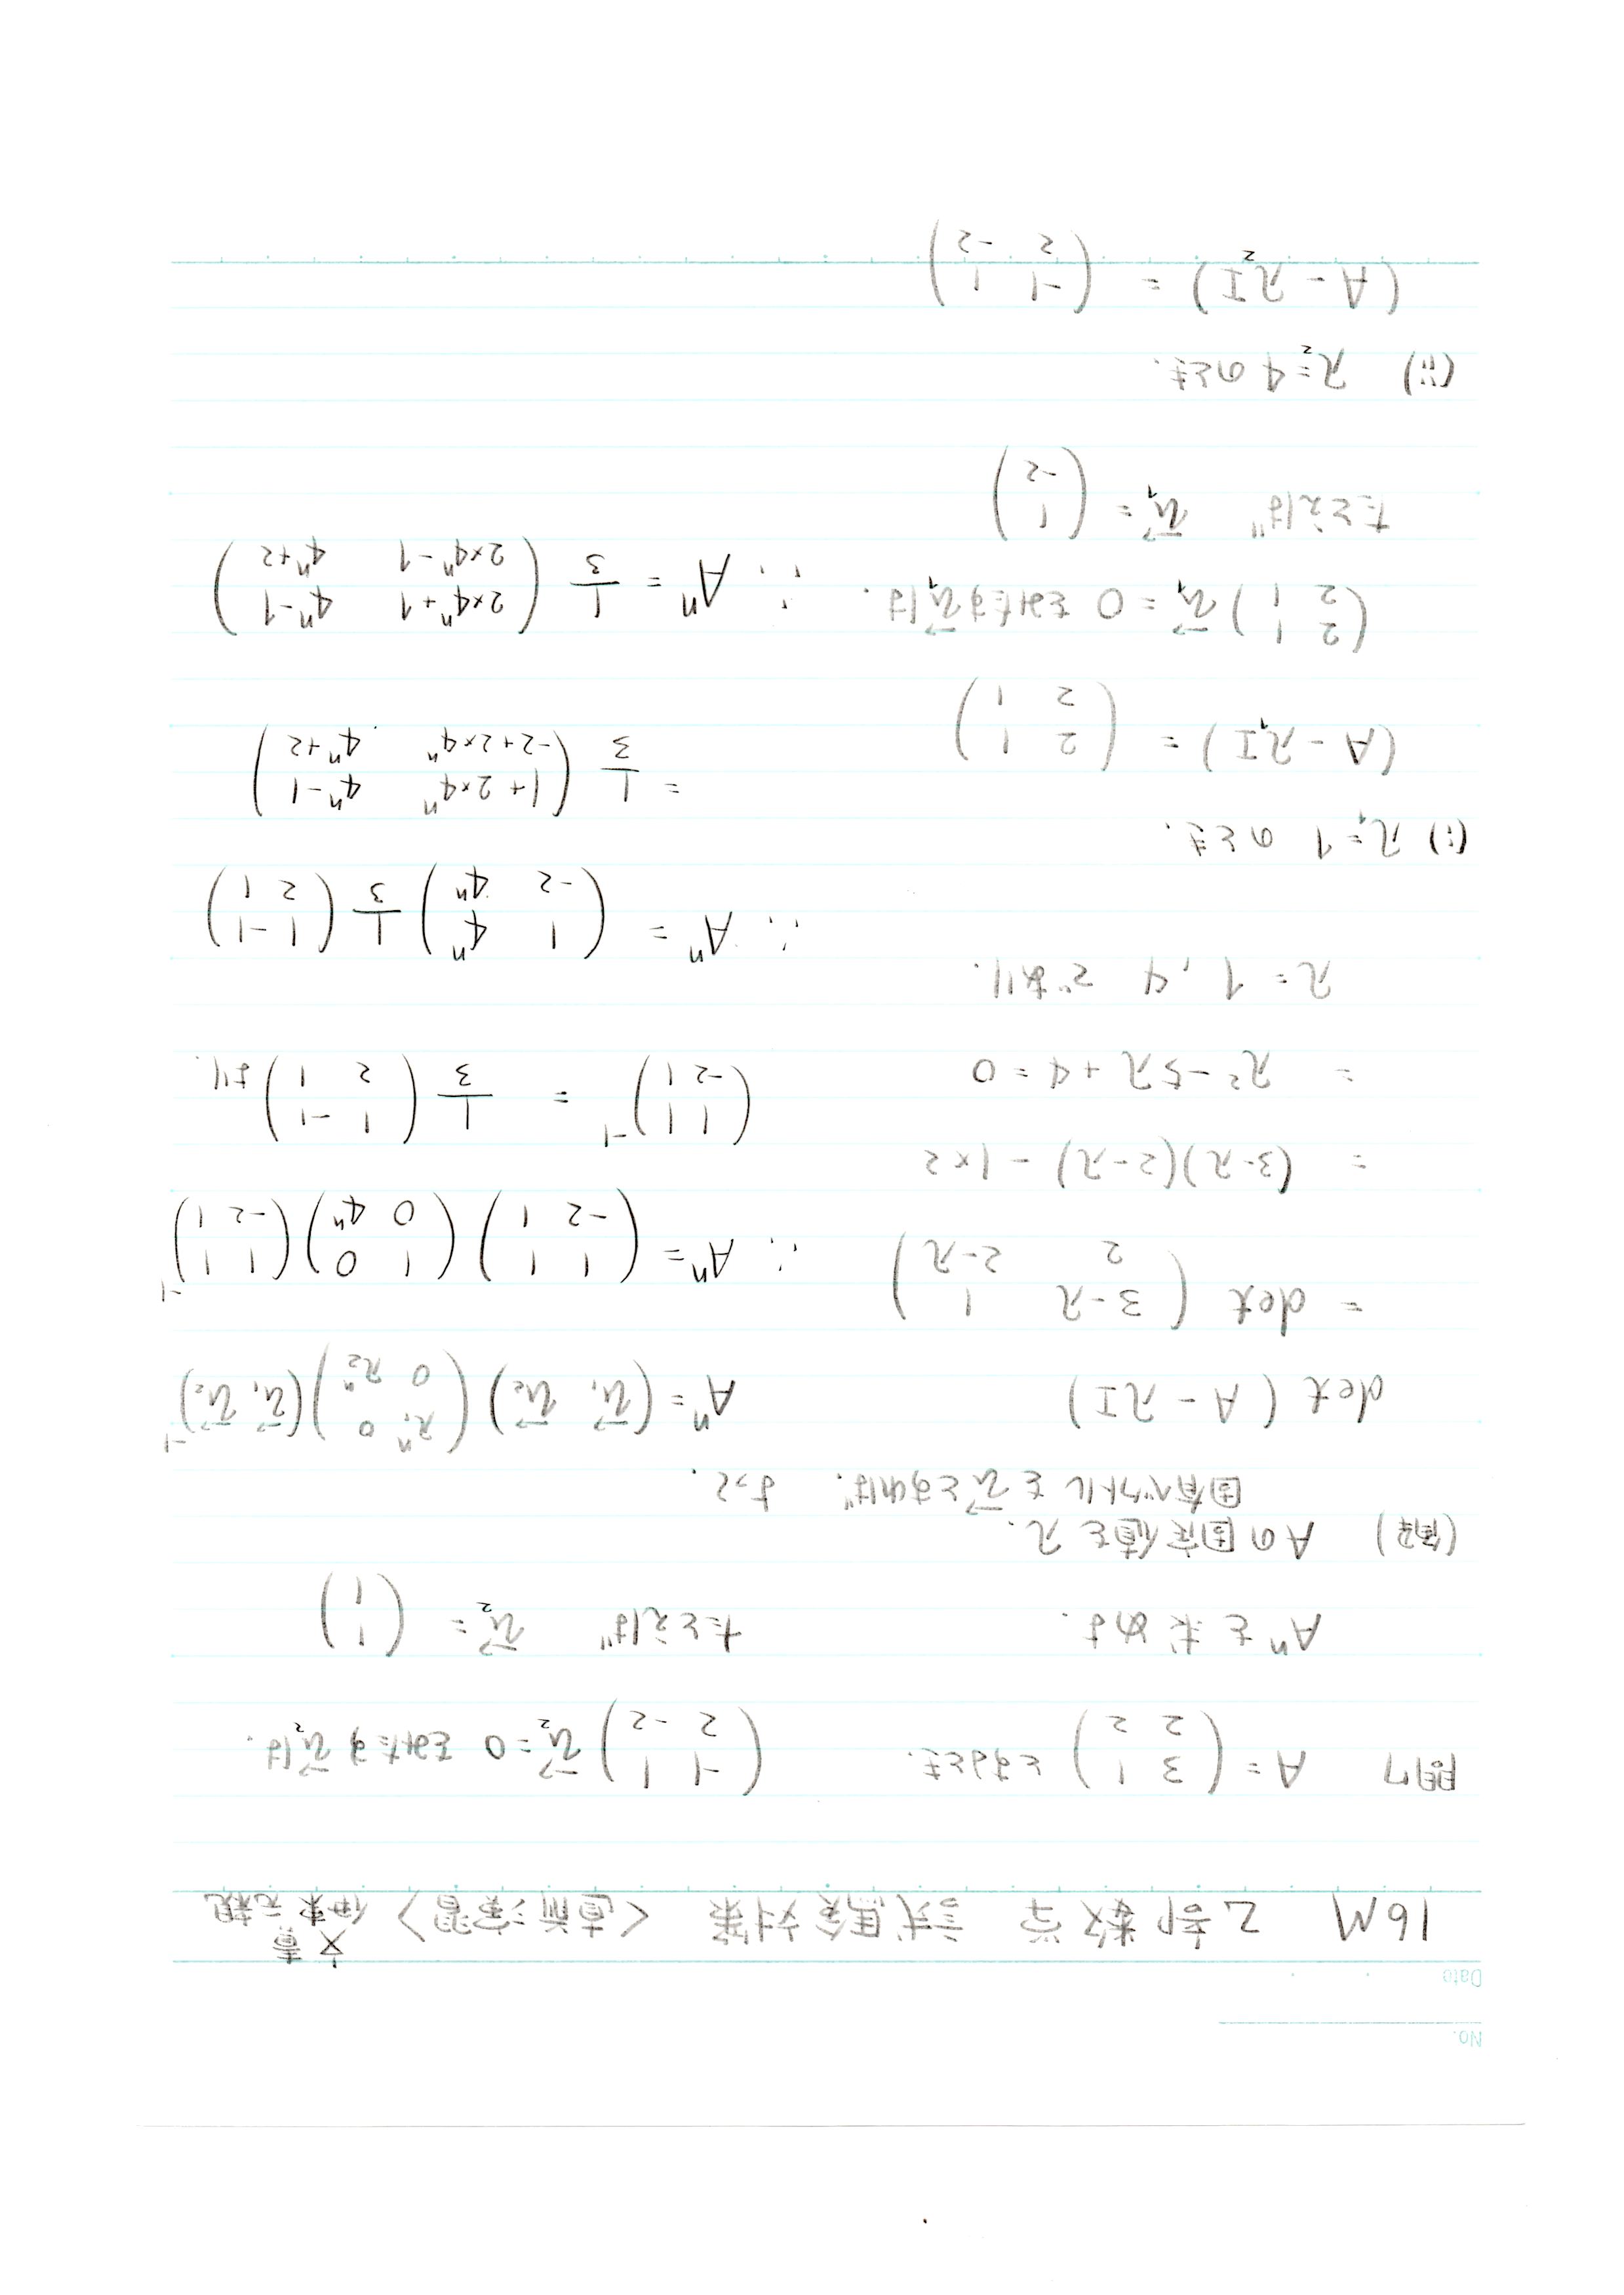 No.
Date
16M 乙部数学 試験対策 <直前演習> 文責 伊東元親
問7 A = ( 3 1 ; 2 2 ) とするとき.
Aⁿを求めよ
(解) Aの固定値をλ.
固有ベクトルを u⃗とすれば".
det (A - λI)
= det ( 3-λ 1 ; 2 2-λ )
= (3-λ)(2-λ) - 1×2
= λ² - 5λ + 4 = 0
λ = 1, 4 であり.
(i) λ₁=1 のとき.
(A - λ₁I) = ( 2 1 ; 2 1 )
( 2 1 ; 2 1 ) u⃗₁ = 0 をみたす u⃗₁は.
たとえば" u⃗₁ = ( 1 ; -2 )
(ii) λ₂=4 のとき.
(A - λ₂I) = ( -1 1 ; 2 -2 )
( -1 1 ; 2 -2 ) u⃗₂ = 0 をみたす u⃗₂は.
たとえば" u⃗₂ = ( 1 ; 1 )
よって.
Aⁿ = ( u⃗₁ u⃗₂ ) ( λ₁ⁿ 0 ; 0 λ₂ⁿ ) ( u⃗₁ u⃗₂ )⁻¹
∴ Aⁿ = ( 1 1 ; -2 1 ) ( 1 0 ; 0 4ⁿ ) ( 1 1 ; -2 1 )⁻¹
( 1 1 ; -2 1 )⁻¹ = 1/3 ( 1 -1 ; 2 1 ) より.
∴ Aⁿ = ( 1 4ⁿ ; -2 4ⁿ ) 1/3 ( 1 -1 ; 2 1 )
= 1/3 ( 1+2×4ⁿ 4ⁿ-1 ; -2+2×4ⁿ 4ⁿ+2 )
∴ Aⁿ = 1/3 ( 2×4ⁿ+1 4ⁿ-1 ; 2×4ⁿ-1 4ⁿ+2 )